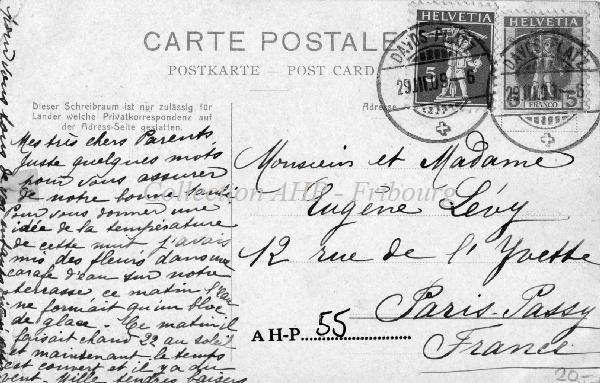 CARTE POSTALE
POSTKARTE — POST CARD
HELVETIA
5
HELVETIA
FRANCO
5
DAVOS-PLATZ
29.III.09-6
DAVOS-PLATZ
29.III.09-6
Dieser Schreibraum ist nur zulässig für
Länder welche Privatkorrespondenz auf
der Adress-Seite gestatten.
Adresse
Mes très chers Parents
Juste quelques mots
pour vous assurer
de notre bonne santé
Pour vous donner une
idée de la température
de cette nuit j'avais
mis des fleurs dans une
carafe d'eau sur notre
terrasse ce matin l'eau
ne formait qu'un bloc
de glace. Ce matin il
faisait chaud 22 au soleil
et maintenant le temps
est couvert et il y a du
vent. Mille tendres baisers
Monsieur et Madame
Eugène Lévy
12 rue de l'Yvette
Paris-Passy
France
Collection AHP - Fribourg
AH-P 55
20.-